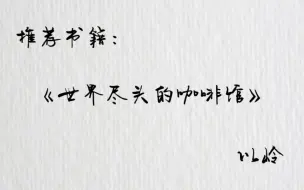 推荐书籍：
《世界尽头的咖啡馆》
以岭